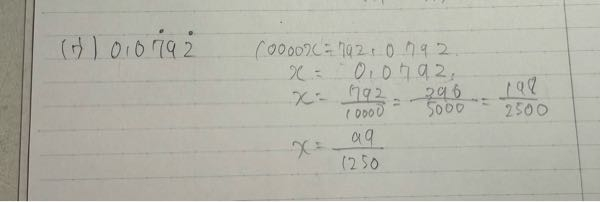 (ウ) 0.07̇92̇ 10000x=792.0792
x= 0.0792.
x= 792/10000 = 396/5000 = 198/2500
x= 99/1250